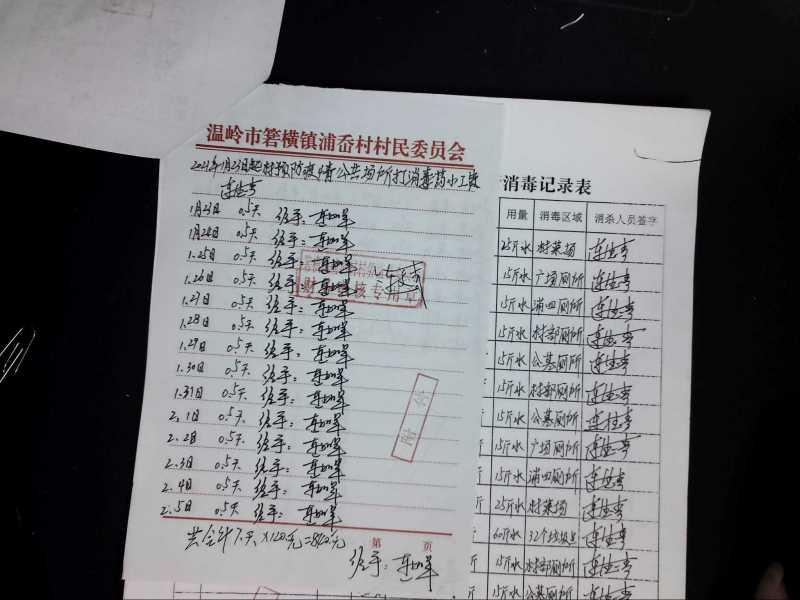 温岭市箬横镇浦岙村村民委员会
2021年1月23日起村预防疫情公共场所打消毒药小工资
连仕亨
1月23日 0.5天 经手:
1月24日 0.5天 经手:
1.25日 0.5天 经手:
1.26日 0.5天 经手:
1.27日 0.5天 经手:
1.28日 0.5天 经手:
1.29日 0.5天 经手:
1.30日 0.5天 经手:
1.31日 0.5天 经手:
2.1日 0.5天 经手:
2.2日 0.5天 经手:
2.3日 0.5天 经手:
2.4日 0.5天 经手:
2.5日 0.5天 经手:
共合计7天×120元=840元
第 页
经手:
财 核专用章
附件
消毒记录表
用量 消毒区域 消杀人员签字
25斤水 村菜场 连仕亨
15斤水 广场厕所 连仕亨
15斤水 浦四厕所 连仕亨
15斤水 村部厕所 连仕亨
15斤水 公墓厕所 连仕亨
15斤水 村部厕所 连仕亨
15斤水 公墓厕所 连仕亨
15斤水 广场厕所 连仕亨
15斤水 浦四厕所 连仕亨
25斤水 村菜场 连仕亨
60斤水 32个垃圾 连仕亨
15斤水 村部厕所 连仕亨
15斤水 公墓厕所 连仕亨